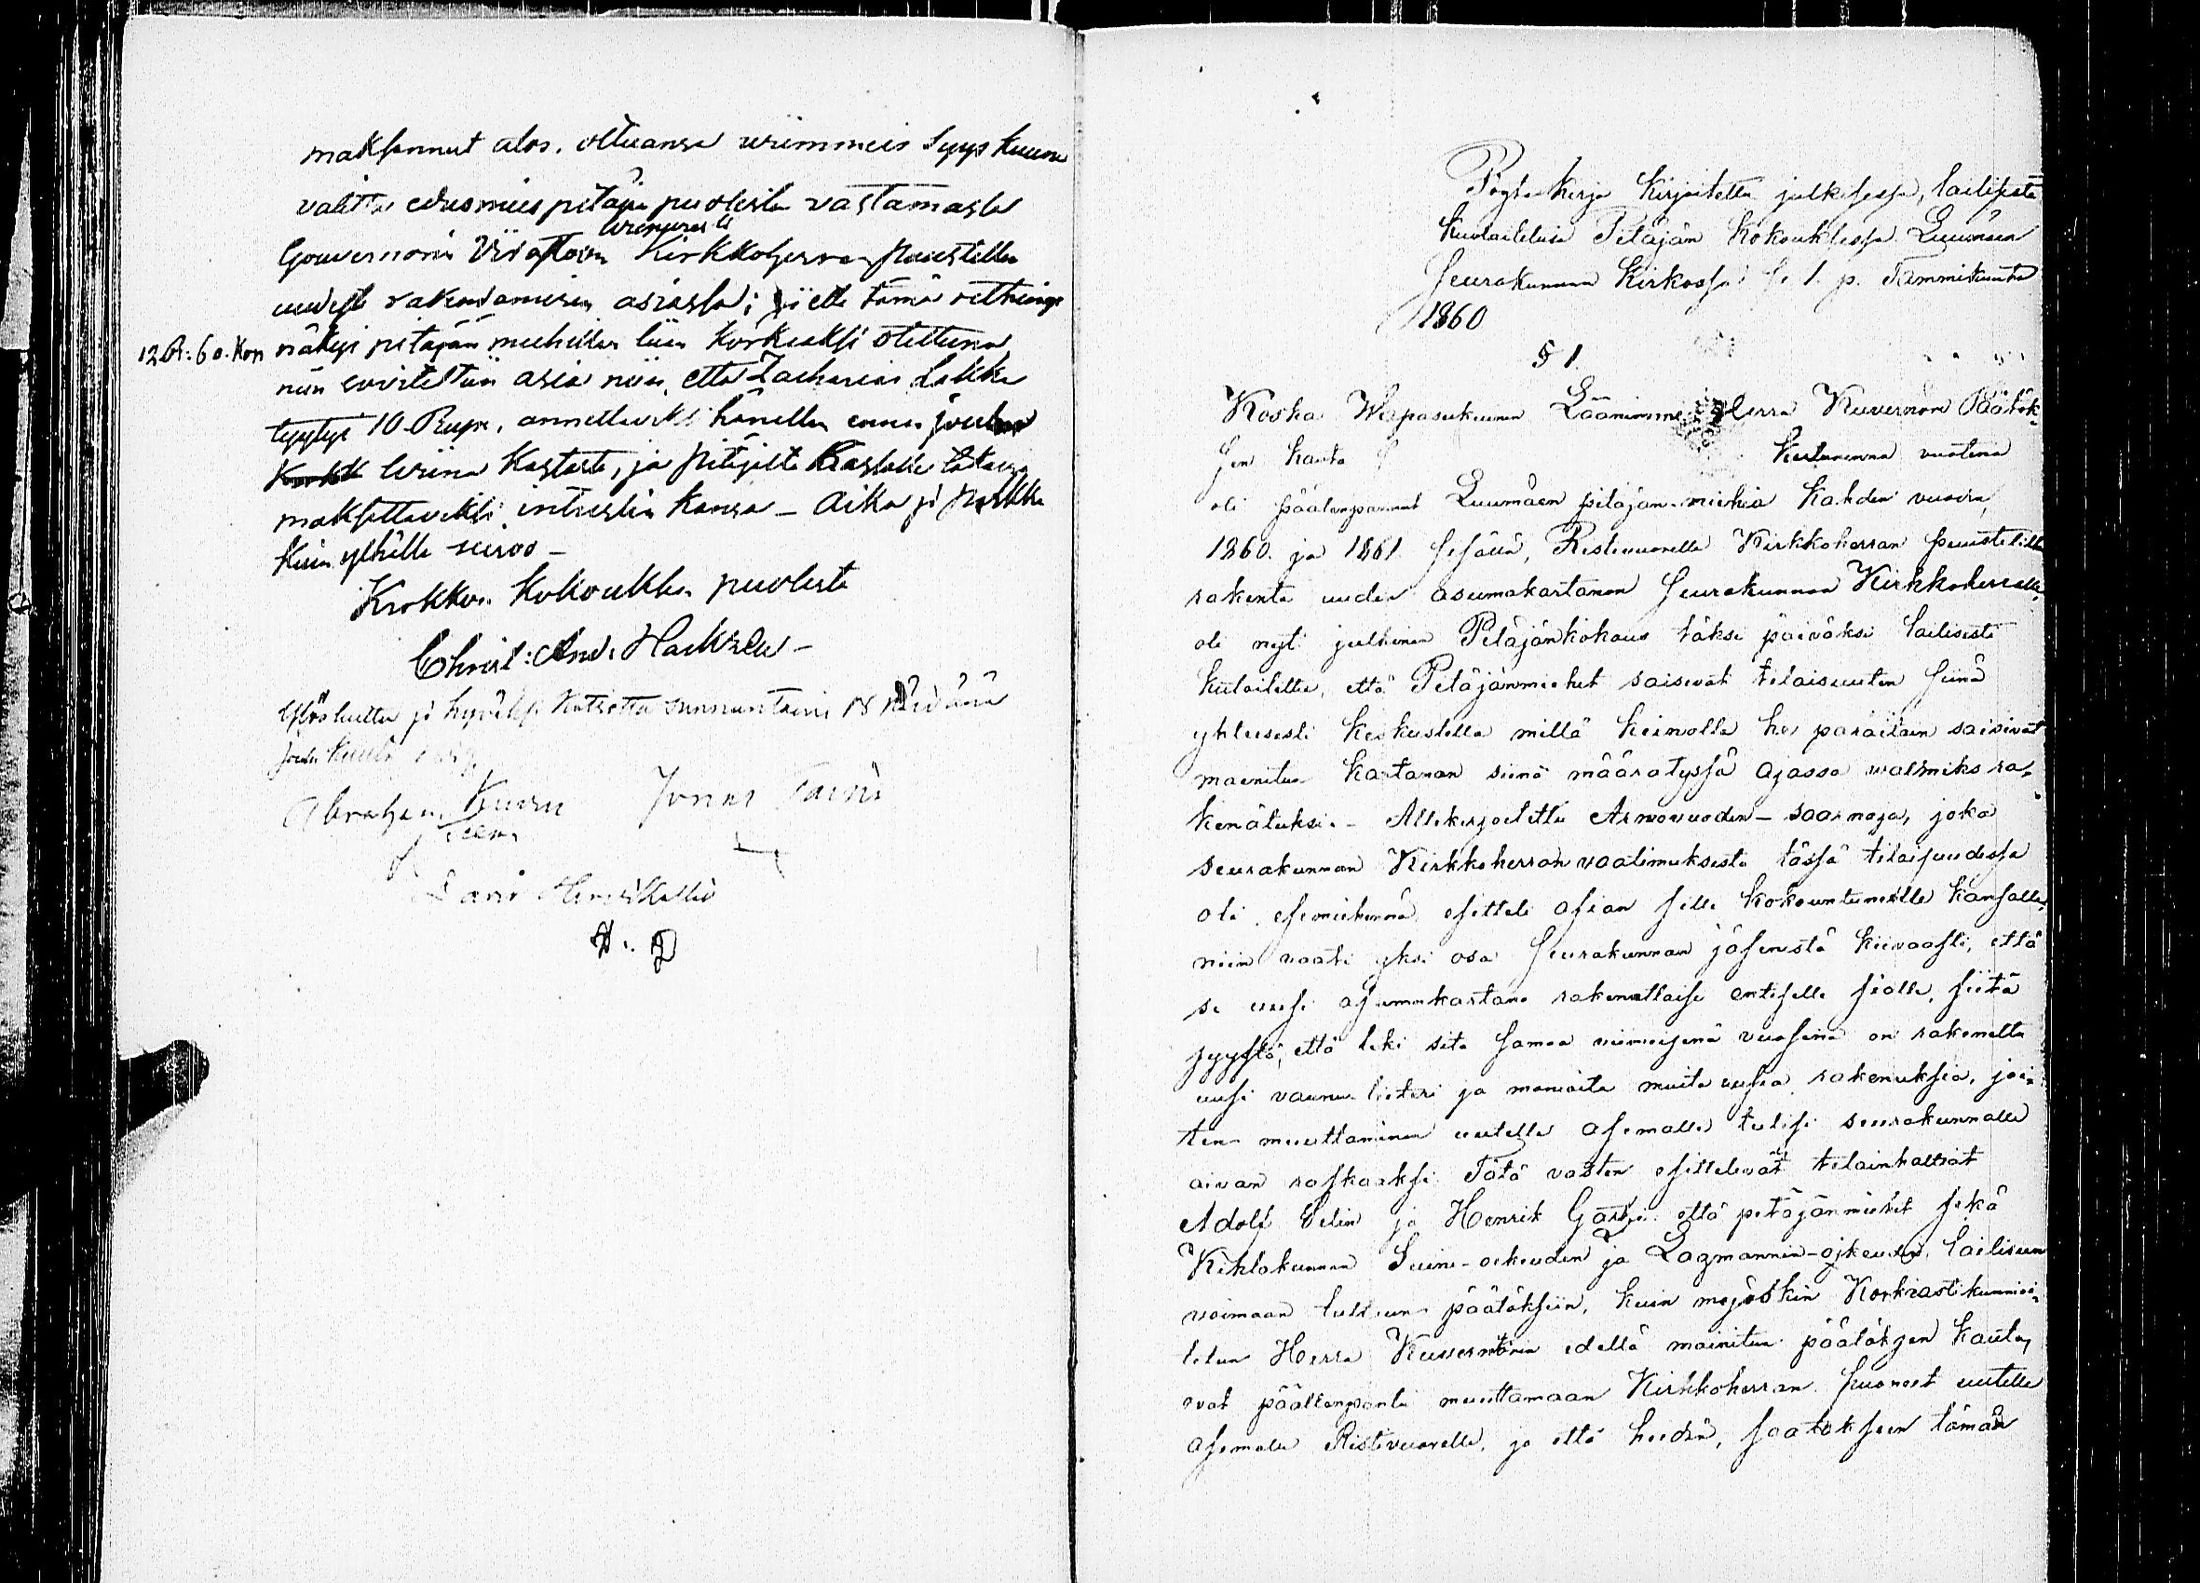 maksannut ulos, oltuansa wiimmeis Syys kuusa
valittu edusmies pitäjän puolesta vastamasta
Gouvernörin Virastoon Kirkkoherran puustellin
uudesta rakendamisen asiasta; ja että tämä
12 R: 60. Kop näkyi pitäjän miehilden liian korkiaksi otettuna
niin sovitettiin asia niin, että Zacharias Lakka
tyytyi 10 Rupl, annettavaksi hänellen ennen joulua
wiina kassasta, ja pitäjältä kassalle takasin
maksettavaksi intressin kansa – Aika ja paikka
kuin ylhällä seisoo –
Kirkkon kokouksen puolesta
Christ: And: Hacklin –
Ylösluettu ja hyväksi katsottu sunnuntaina 18
Joulu kuuta
Abraham Kuusu Jonas Taina
Pöytäkirja kirjoitettu julkisessa, laillisesta
kuulutetussa Pitäjän kokouksessa Luumäen
Seurakunnan Kirkossa S. 1. p. Tammikuuta
1860
§ 1.
Koska Wapasukuinen Läänimme Herra Kuvernöri Päätök-
sen kautta kuluneena vuotena
oli päälenpannut Luumäen pitäjän-miehiä kahden vuoden,
1860 ja 1861 sisällä, Ristivuorelle Kirkkoherran puustelille
rakenta uuden asumakartanon Seurakunnan Kirkkoherralle,
oli nyt julkinen Pitäjänkokous täksi päiväksi lailisesti
kuulutettu, että Pitäjänmiehet saisivat tilaisuuten siinä
yhteisesti keskustella millä keinolla he paraitain saisivat
mainitun kartanon siinä määrätyssä ajassa walmiks ra-
kenätuksi. – Allekirjoitettu Armovuoden-saarnaja, joka
seurakunnan Kirkkoherran vaatimuksesta tässä tilaisuudessa
oli esimiehenä esitteli asian sille kokountuneelle kansalle,
niin vaati yksi osa Seurakunnan jäsenistä kiivaasti, että
se uusi asumakartano rakenettaisi entiselle sialle, siitä
syystä, että liki sitä samaa viimeisenä vuosina on rakenettu
uusi vaunu liiteri ja moniaita muita uusia rakenuksia, joi-
ten muuttaminen uutelle asemalle tulisi seurakunnalle
aivan raskaaksi. Tätä vasten esittelevät tilainhaltiat
Adolf Selin ja Henrik että pitäjänmiehet sekä
Kihlakunnan Suuin-oikeuden ja Lagmannin-oikeuden lailiseen
voimaan tulleen päätöksiin, kuin myöskin Korkiastikunnioi-
tetun Herra Kuvernörin edellä mainitun päätöksen kautta,
ovat päällenpantu muuttamaan Kirkkoherran huoneet uutelle
asemalle Ristivuorelle, ja että heidän, saataksen tämän